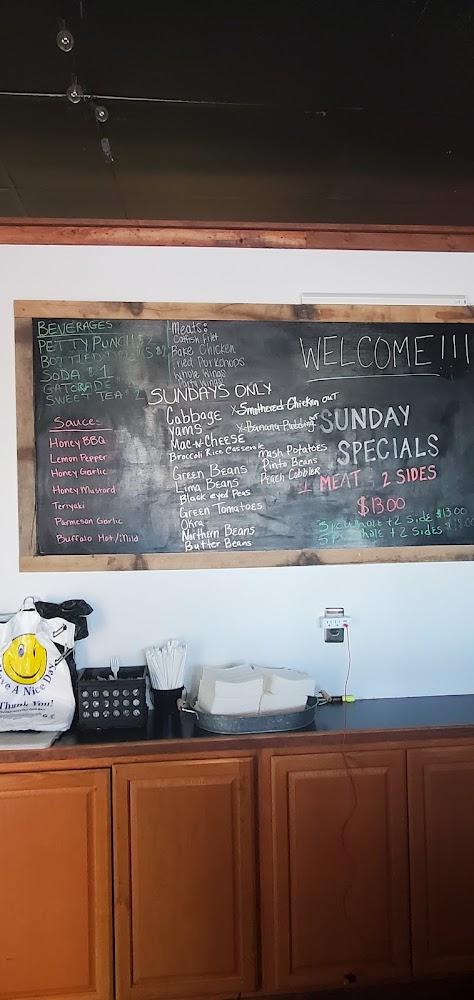 BEVERAGES
PETTY PUNCH $2
SODA $1
GATORADE
SWEET TEA $2
Sauce:
Honey BBQ
Lemon Pepper
Honey Garlic
Honey Mustard
Teriyaki
Parmesan Garlic
Buffalo Hot/Mild
Meats:
Catfish filet
Bake Chicken
Fried Porkchops
Whole Wings
Party Wings
SUNDAYS ONLY
Cabbage
Yams
Mac-n-CHEESE
Broccoli Rice Casserole
Green Beans
Lima Beans
Black eyed Peas
Green Tomatoes
Okra
Northern Beans
Butter Beans
X-Smothered Chicken OUT
X-Banana Pudding
Mash Potatoes
Pinto Beans
Peach Cobbler
WELCOME!!!
SUNDAY
SPECIALS
1 MEAT 2 SIDES
$13.00
3pc whole + 2 side $13.00
Whole + 2 sides
Have A Nice Day
Thank You!